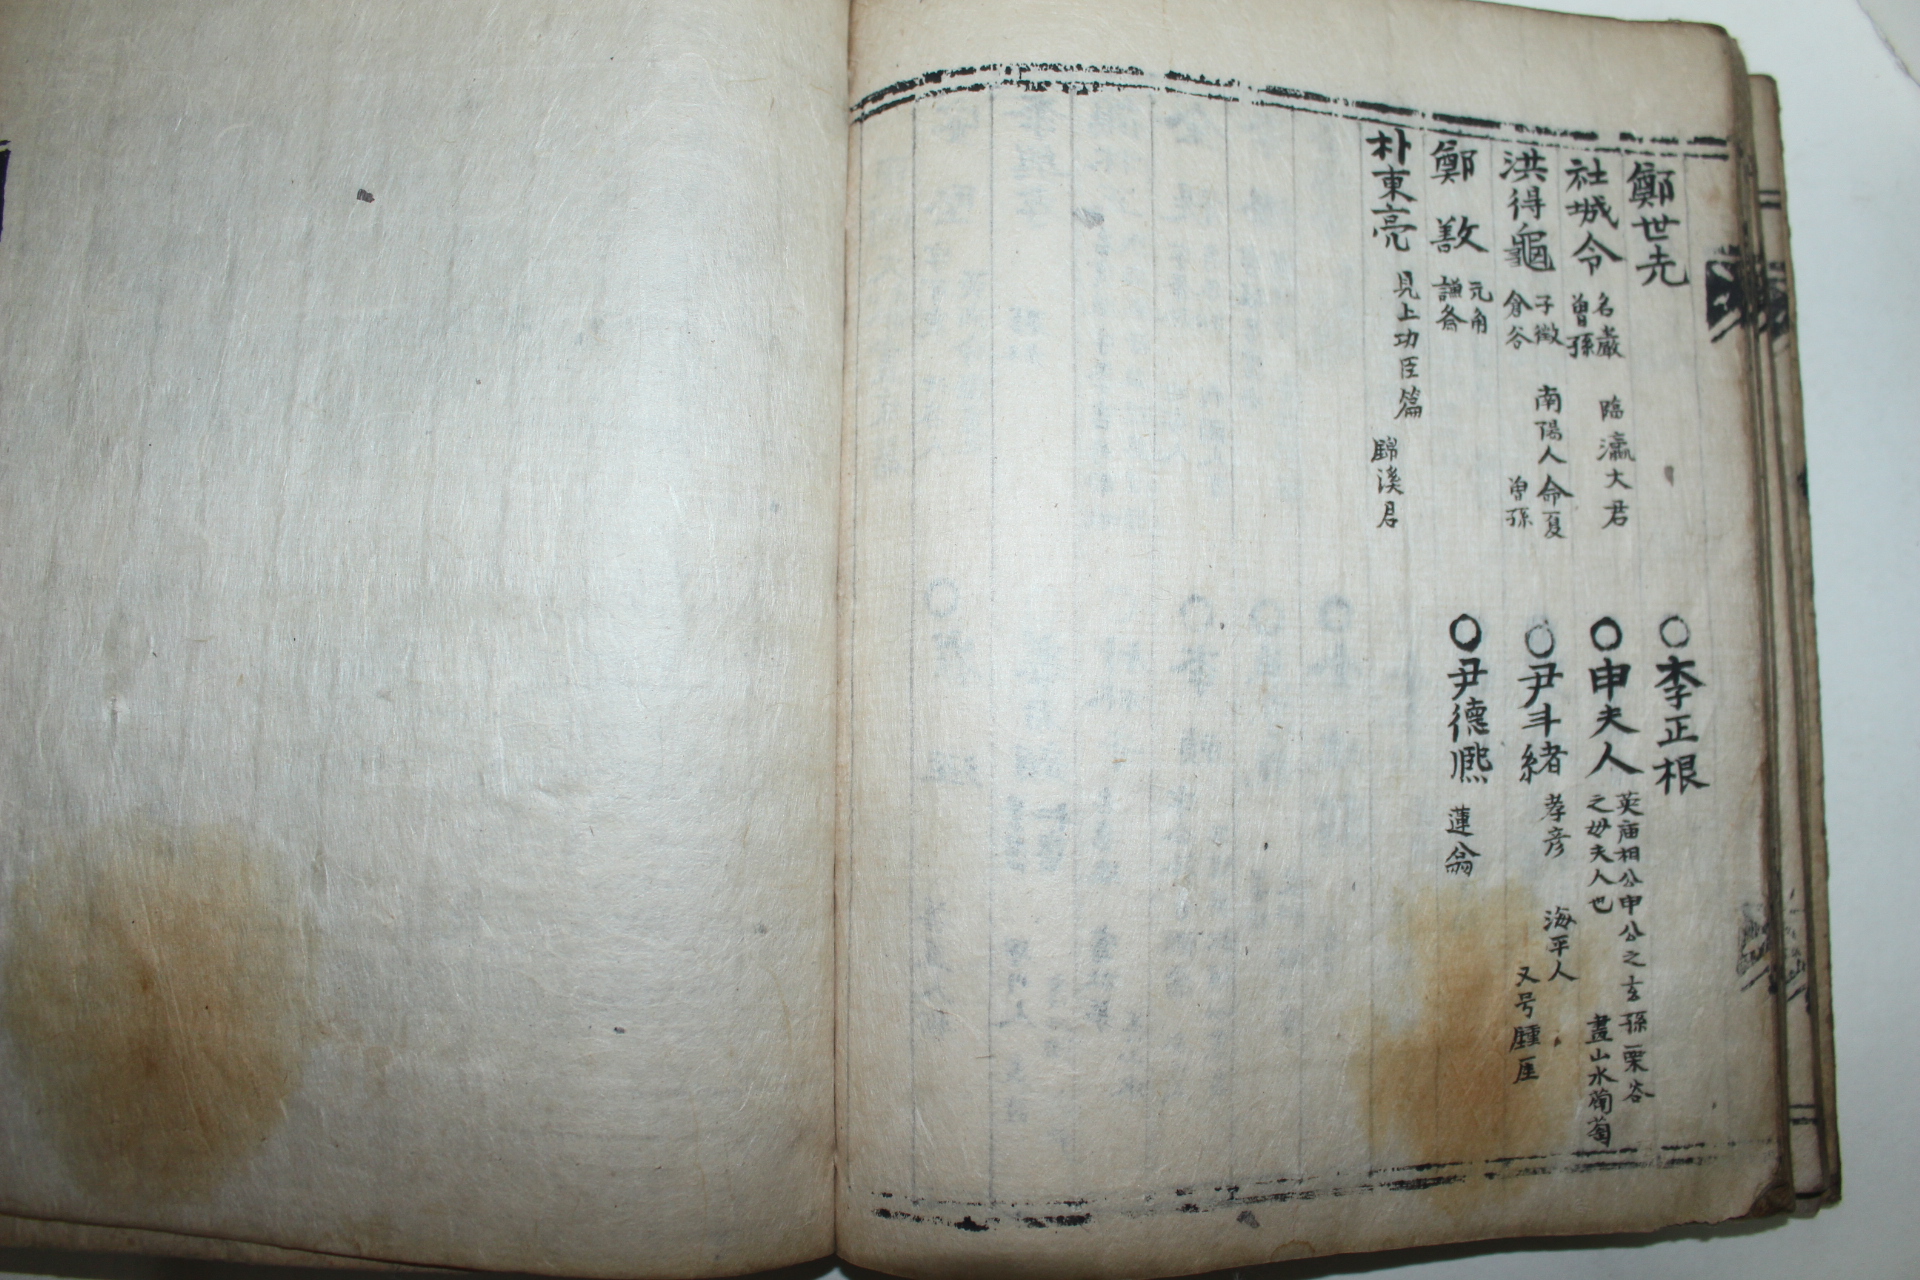 鄭世㐫
社城令 名巖 曽孫 臨瀛大君
洪得龜 子徵 倉谷 南陽人命夏 曽孫
鄭敾 元伯 謙斎
朴東亮 見上功臣篇 錦溪君
○李正根
○申夫人 英庙相公申公之玄孫栗谷之母夫人也 畫山水葡萄
○尹斗緒 孝彦 海平人 又号 厓
○尹德熙 蓮翁